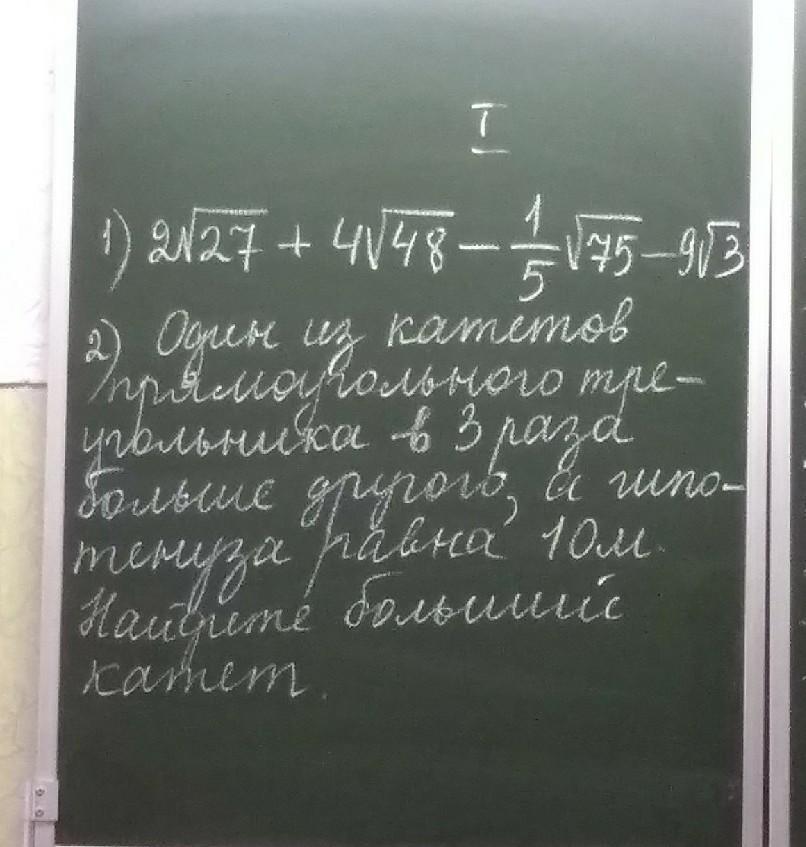 I
1) 2√27 + 4√48 − 1/5 √75 − 9√3
2) Один из катетов
прямоугольного тре-
угольника в 3 раза
больше другого, а гипо-
тенуза равна 10м.
Найдите больший
катет.